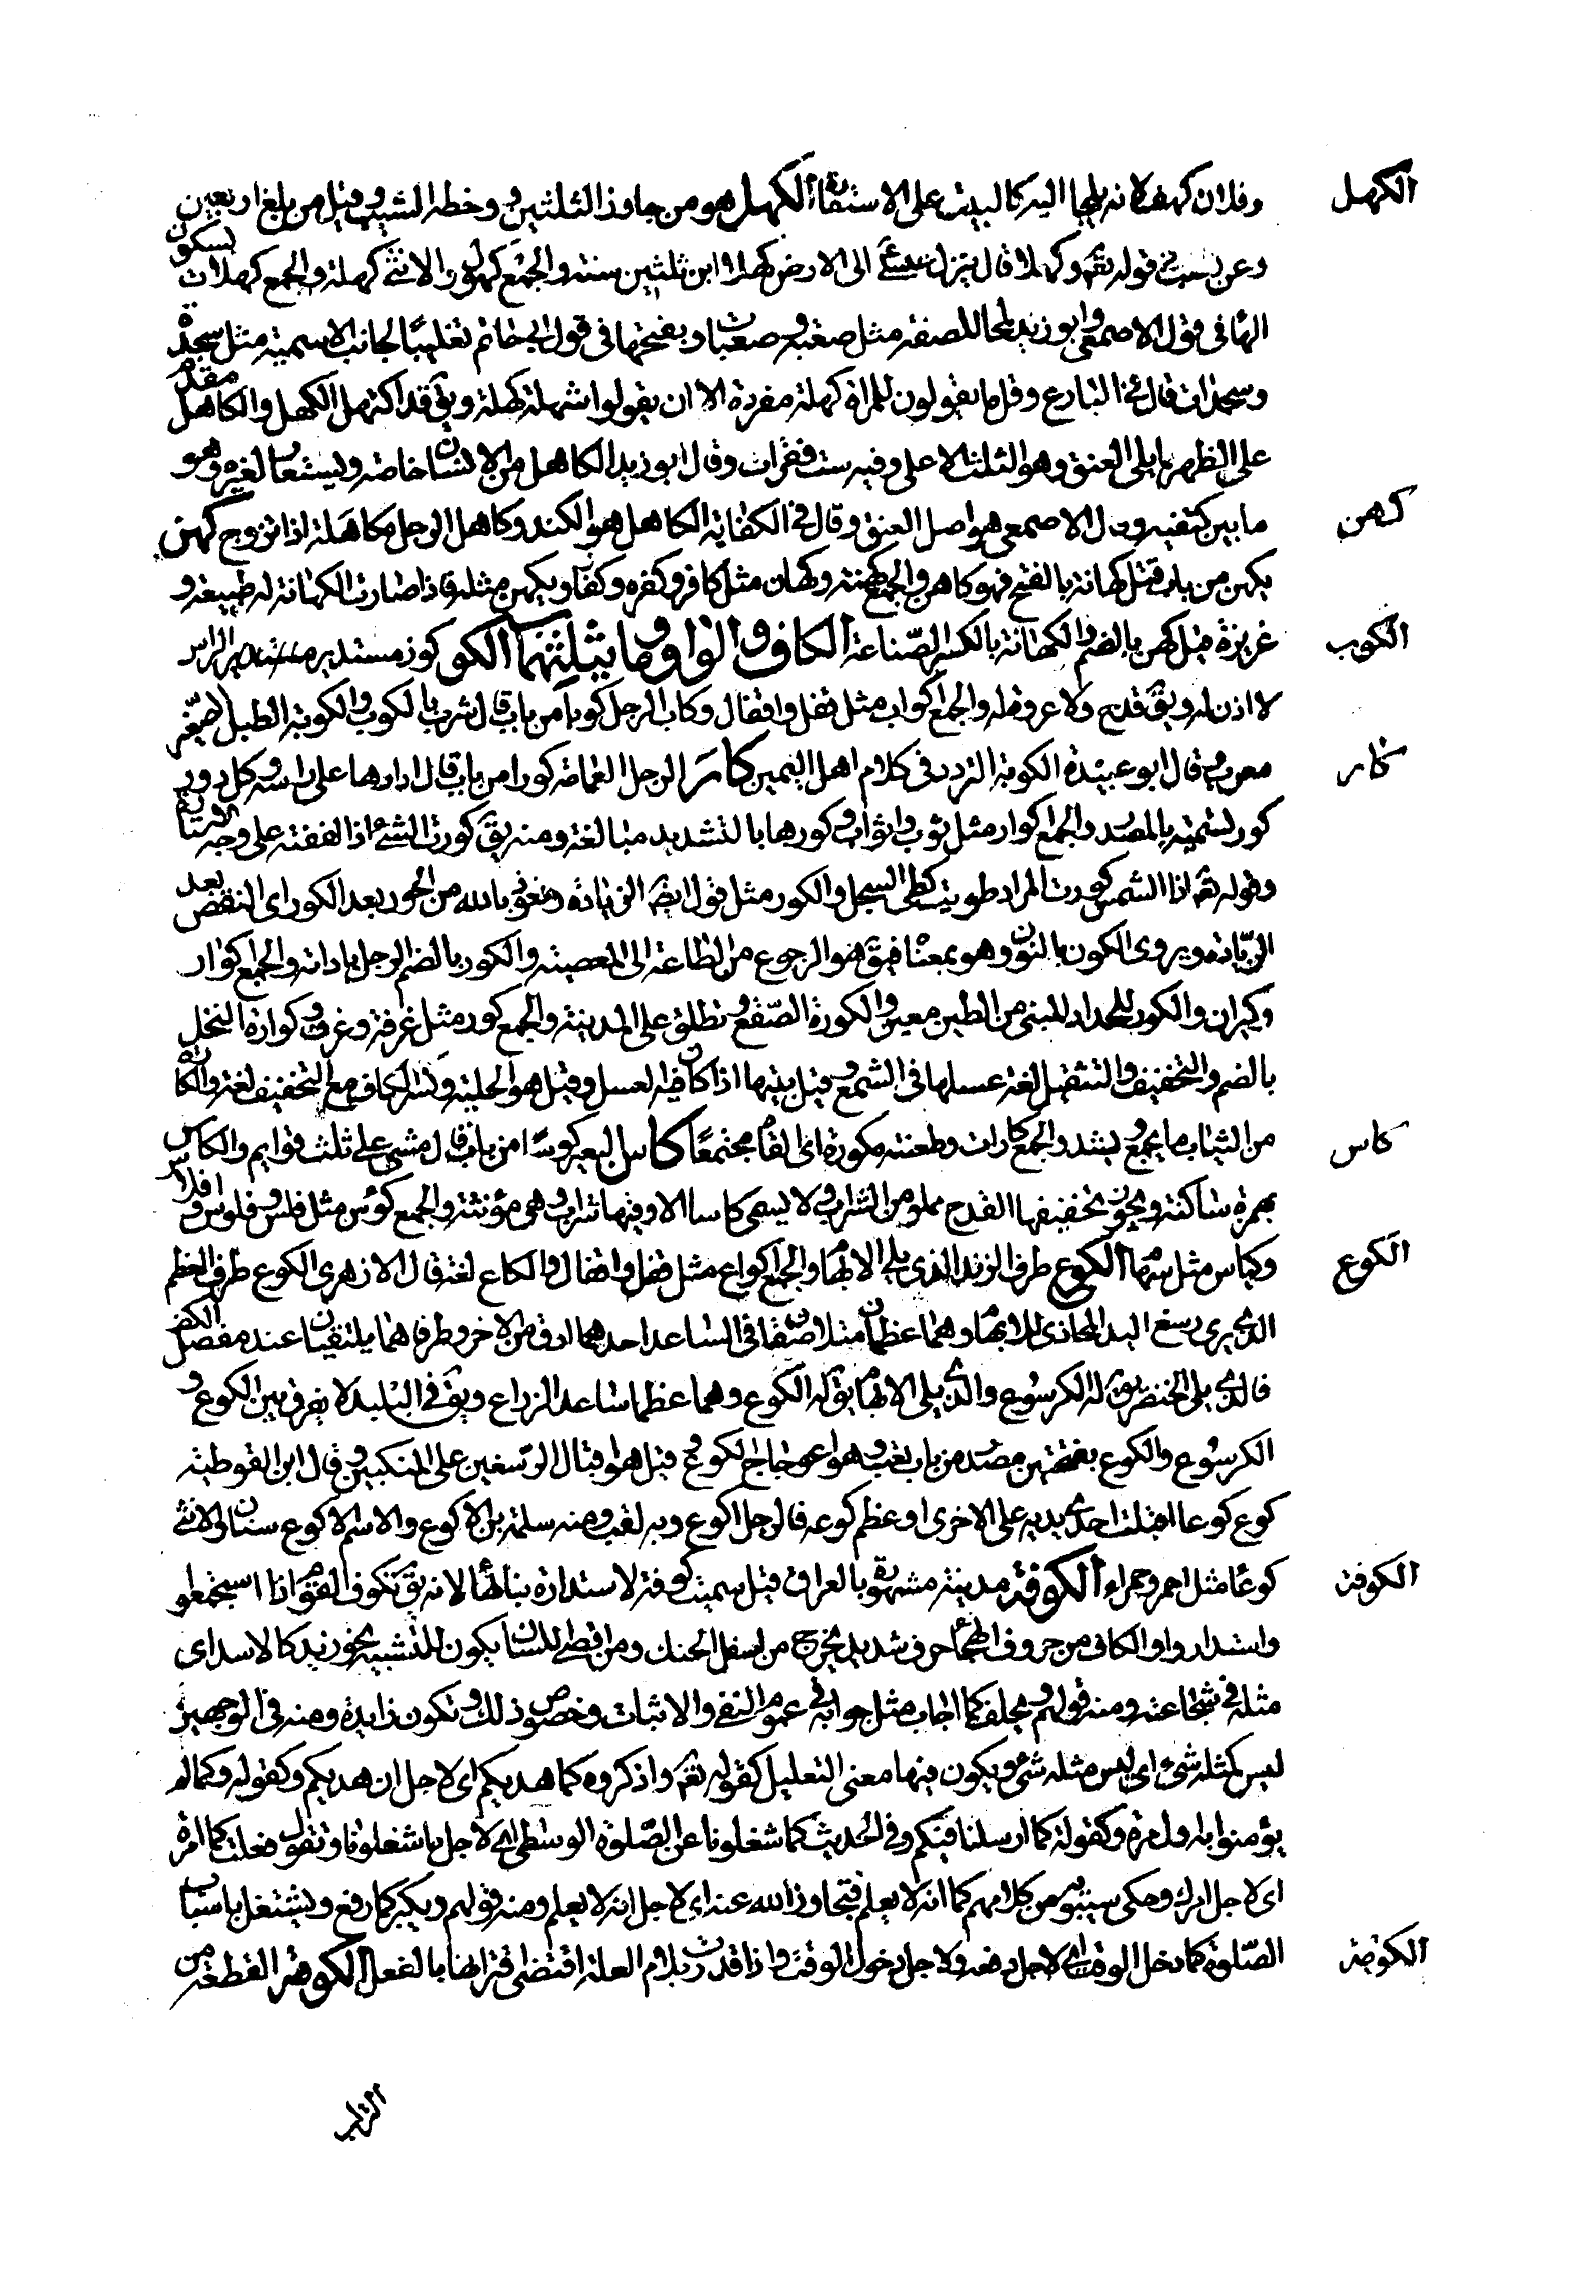 الكهل
وفلان كهف لانه يلجا اليه كالبيت على الاستعارة الكهل هو من جاوز الثلثين و وخطه الشيب وقيل من بلغ اربعين
وعن في قوله تعم وكهلا قال ينزل عيسى الى الارض كهلا ابن ثلثين سنة والجمع كهول والانثى كهلة والجمع كهلات بسكون
الها في قول الاصمعي وابو زيد لمحا للصفة مثل صعبة وصعبات وبفتحها في قول ابي حاتم تغليبا لجانب الاسمية مثل سجدة
وسجدات قال في البارع وقل ما يقولون للمراة كهلة مفردة الا ان يقولوا شهلة كهلة ويق قد اكتهل الكهل والكاهل مقدم
على الظهر ما يلي العنق وهو الثلث الاعلى وفيه ست فقرات وقال ابو زيد الكاهل من الانسان خاصة ويستعار لغيره وهو
كهن
ما بين كتفيه وقال الاصمعي هو اصل العنق وقال في الكفاية الكاهل هو الكتد وكاهل الرجل مكاهلة اذا تزوج كهن
يكهن من باب قتل كهانة بالفتح فهو كاهن والجمع كهنة وكهان مثل كافر وكفره وكفار ويكهن مثله فاذا صارت الكهانة له طبيعة و
الكوب
غريزة قيل كهن بالضم والكهانة بالكسر الصناعة الكاف والواو وما يثلثهما الكوب كوز مستدير الراس
لا اذن له ويق قدح ولا عروة له والجمع اكواب مثل قفل واقفال وكاب الرجل كوبا من باب قال شرب بالكوب والكوبة الطبل الصغير
كار
معرب وقال ابو عبيدة الكوبة النرد في كلام اهل اليمن كار الرجل العمامة كورا من باب قال ادارها على راسه وكل دور
كور تسمية بالمصدر والجمع اكوار مثل ثوب واثواب وكورها بالتشديد مبالغة ومنه يق كورت الشيء اذا لففته على وجه الاستدارة
وقوله تعم اذا الشمس كورت المراد طويت كطي السجل والكور مثل قول ايضم الزيادة ونعوذ بالله من الحور بعد الكور اي النقص بعد
الزيادة ويروى الكون بالنون وهو بمعناه ويق هو الرجوع من الطاعة الى المعصية والكور بالضم الرحل باداته والجمع اكوار
وكيران والكور للحداد المبني من الطين معرب والكورة الصقع وتطلق على المدينة والجمع كور مثل غرفة وغرف وكوارة النحل
بالضم والتخفيف والتثقيل لغة عسلها في الشمع وقيل بيتها اذا كان فيه العسل وقيل هو الخلية وكسر الكاف مع التخفيف لغة والكارة
كاس
من الثياب ما يجمع ويشد والجمع كارات وطعنه مكورة اي القاه مجتمعا كاس البعير كوسا من باب قال مشى على ثلث قوايم والكاس
بهمزة ساكنة ويجوز تخفيفها القدح مملو من الشراب ولا يسمى كاسا الا وفيها شراب وهي مؤنثة والجمع كؤس مثل فلس وفلوس وافلس
الكوع
وكياس مثل سهام الكوع طرف الزند الذي يلي الابهام والجمع اكواع مثل قفل واقفال والكاع لغة قال الازهري الكوع طرف العظم
الذي يلي رسغ اليد المحاذي للابهام وهما عظمان متلاصقان في الساعد احدهما ادق من الاخر وطرفاهما يلتقيان عند مفصل الكف
فالذي يلي الخنصر يق له الكرسوع والذي يلي الابهام يق له الكوع وهما عظما ساعد الذراع ويق في البليد لا يفرق بين الكوع و
الكرسوع والكوع بفتحتين مصدر من باب تعب وهو اعوجاج الكوع و قيل هو اقبال الرسغين على المنكبين وقال ابن القوطية
كوع كوعا اقبلت احدى يديه على الاخرى او عظم كوعه فالرجل اكوع وبه لقب ومنه سلمة بن الاكوع والاسم الاكوع سنان والانثى
الكوفة
كوعا مثل احمر وحمراء الكوفة مدينة مشهورة بالعراق قيل سميت كوفة لاستدارة بنائها لانه يق تكوف القوم اذا اجتمعوا
واستداروا والكاف من حروف الهجا حرف شديد يخرج من اسفل الحنك ومن اقصى اللسان يكون للتشبيه نحو زيد كالاسد اي
مثله في شجاعته ومنه قولهم ويحلف كما اجاب مثل جوابه في عموم النفي والاثبات وخصوص ذلك وتكون زايدة ومنه في الوجهين
ليس كمثله شيء اي ليس مثله شيء ويكون فيها معنى التعليل كقوله تعم واذكروه كما هديكم اي لاجل ان هديكم وكقوله وكما لم
يؤمنوا به اول مرة وكقوله كما ارسلنا فيكم وفي الحديث كما شغلونا عن الصلوة الوسطى اي لاجل ما شغلونا وتقول فعلت كما امره
اي لاجل امرك وحكى سيبويه من كلامهم كما انه لا يعلم فتجاوز الله عنه اي لاجل انه لا يعلم ومنه قولهم ويكبر كما رفع ويشتغل باسباب
الكومة
الصلوة كما دخل الوقت اي لاجل رفعه ولاجل دخول الوقت واذا قدرت بلام العلة اقتضى اقترانها بالفعل الكومة القطعة من
التراب